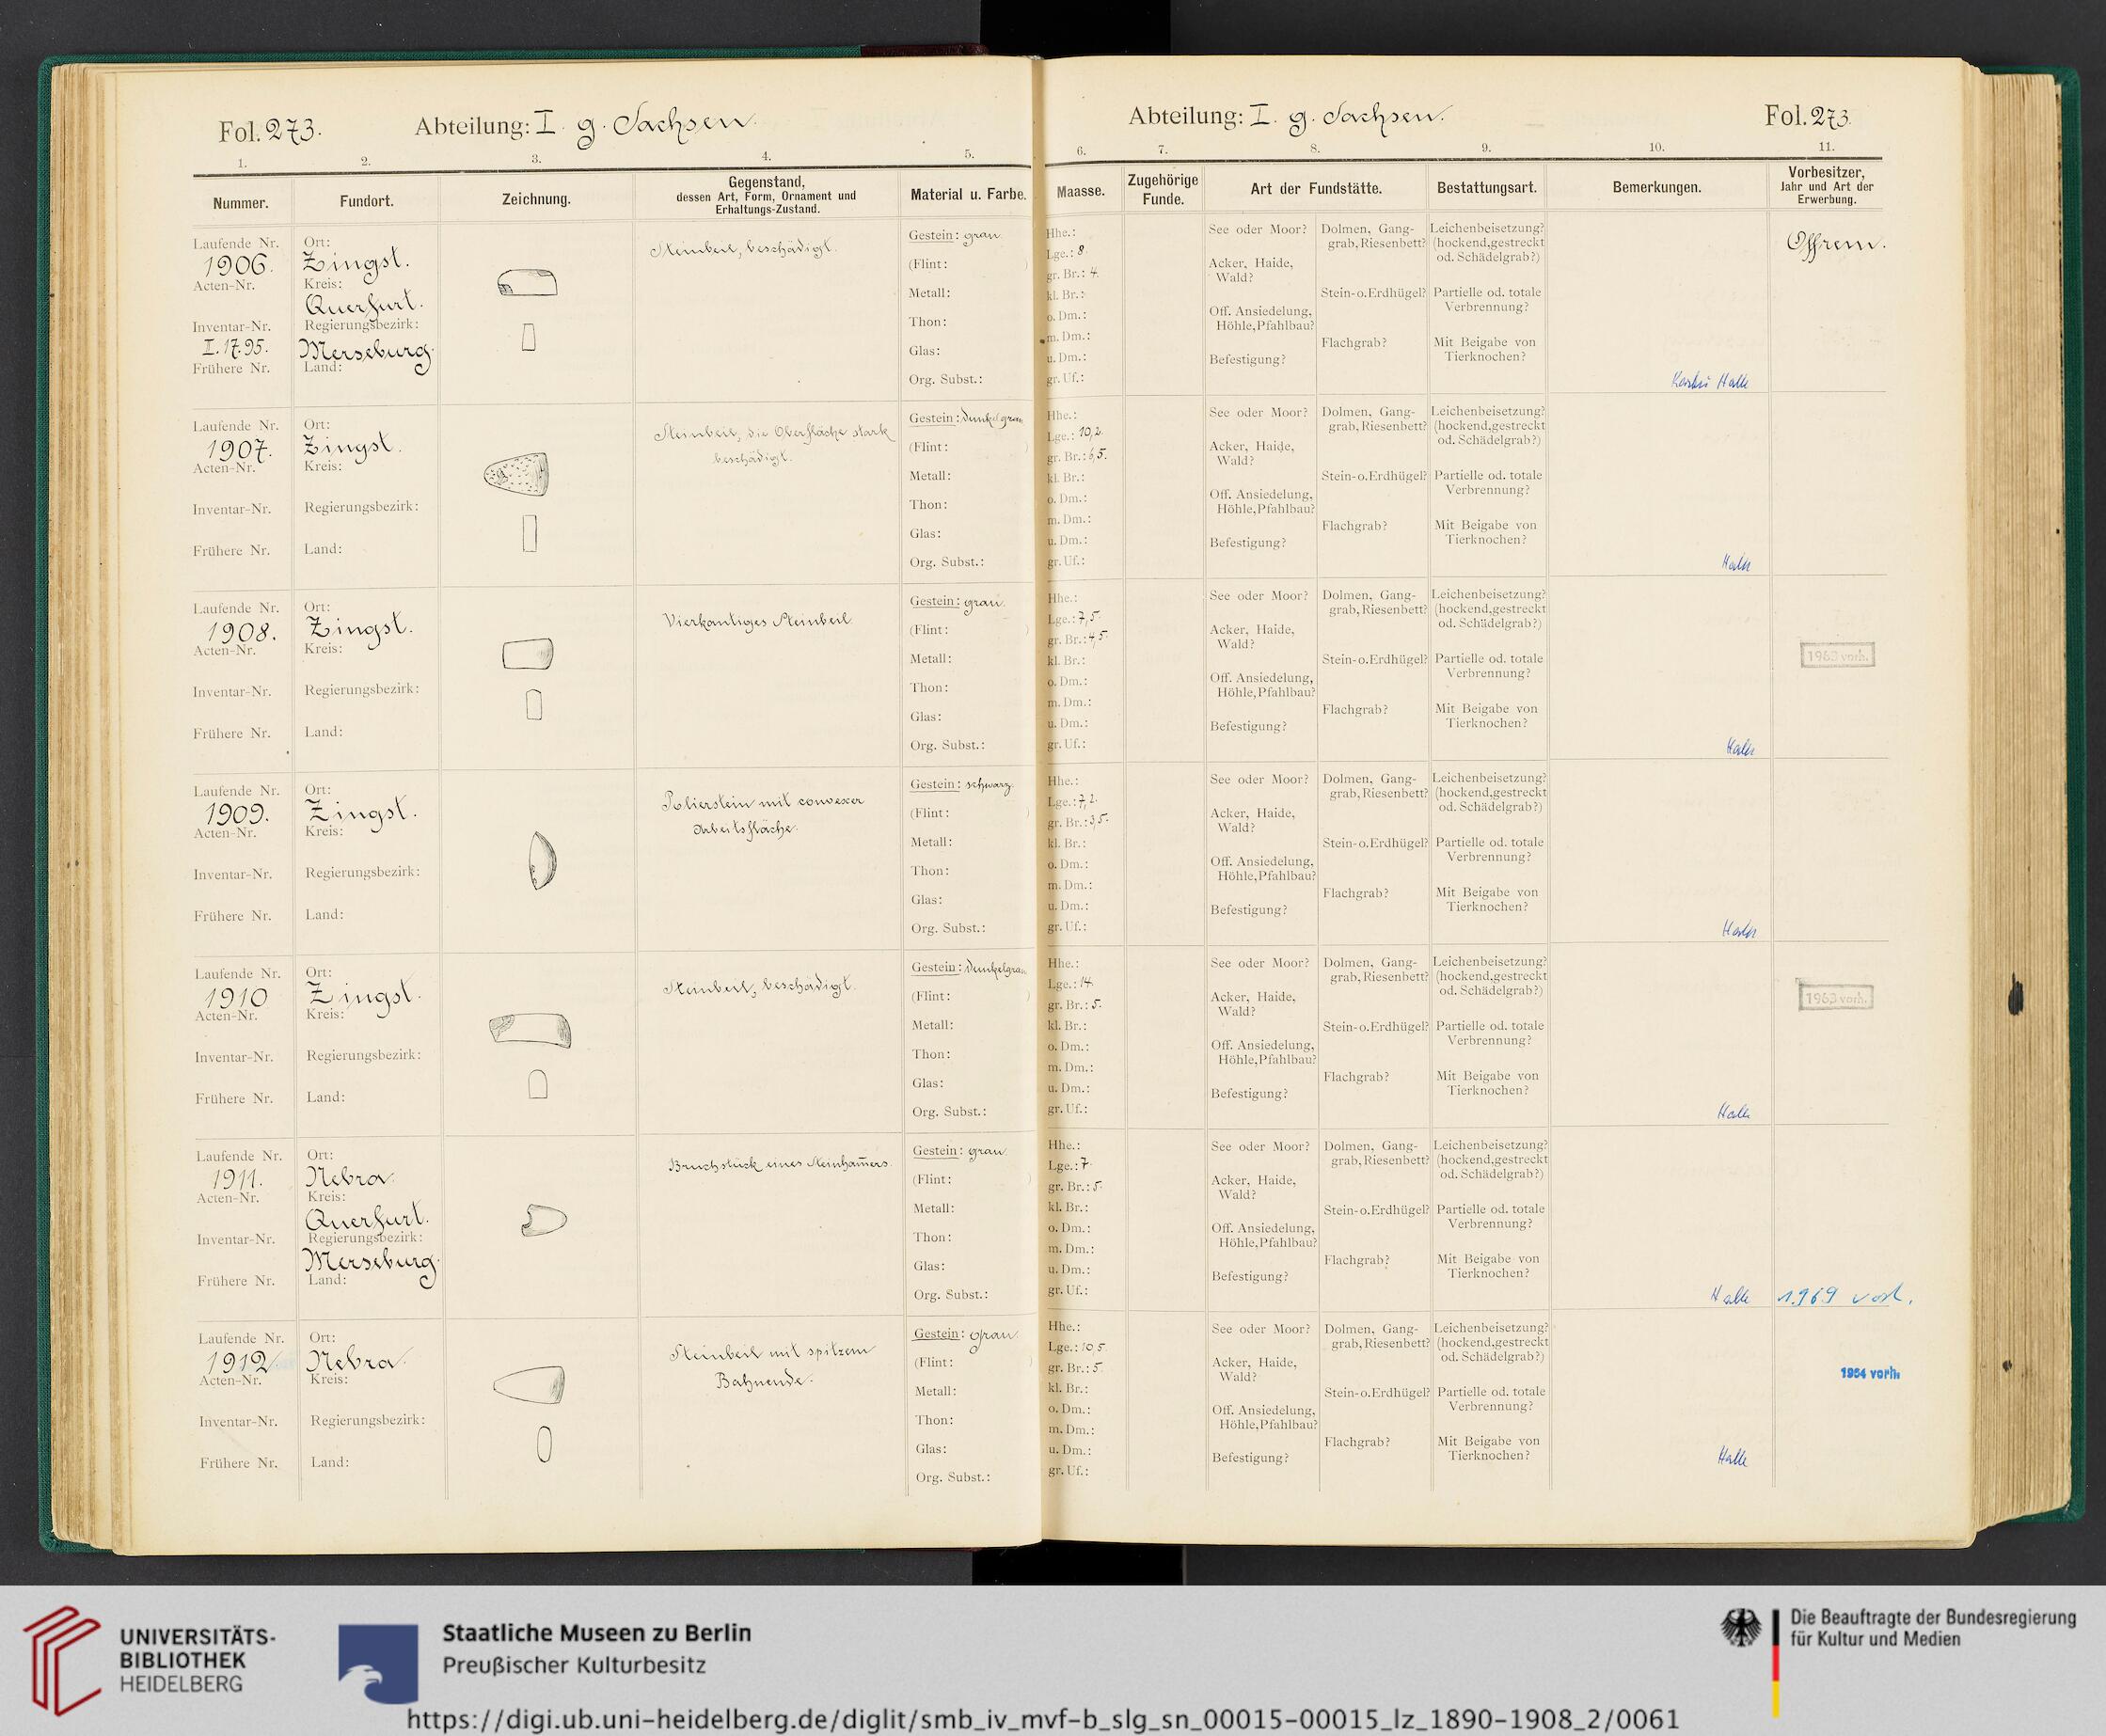 Fol. 273. Abteilung: I. g. Sachsen.
Abteilung: I. g. Sachsen. Fol. 273.
1. 2. 3. 4. 5. 6. 7. 8. 9. 10. 11.
Nummer. Fundort. Zeichnung. Gegenstand, dessen Art, Form, Ornament und Erhaltungs-Zustand. Material u. Farbe. Maasse. Zugehörige Funde. Art der Fundstätte. Bestattungsart. Bemerkungen. Vorbesitzer, Jahr und Art der Erwerbung.
Laufende Nr. 1906.
Acten-Nr.
Inventar-Nr. I. 17.95.
Frühere Nr.
Ort: Zingst.
Kreis: Querfurt.
Regierungsbezirk: Merseburg.
Land:
Steinbeil, beschädigt.
Gestein: grau.
(Flint: )
Metall:
Thon:
Glas:
Org. Subst.:
Hhe.:
Lge.: 8
gr. Br.: 4.
kl. Br.:
o. Dm.:
m. Dm.:
u. Dm.:
gr. Uf.:
See oder Moor?
Acker, Haide, Wald?
Off. Ansiedelung, Höhle, Pfahlbau?
Befestigung?
Dolmen, Gang-grab, Riesenbett?
Stein-o. Erdhügel?
Flachgrab?
Leichenbeisetzung? (hockend, gestreckt od. Schädelgrab?)
Partielle od. totale Verbrennung?
Mit Beigabe von Tierknochen?
Halle
Laufende Nr. 1907.
Acten-Nr.
Inventar-Nr.
Frühere Nr.
Ort: Zingst.
Kreis:
Regierungsbezirk:
Land:
Steinbeil, die Oberfläche stark
beschädigt.
Gestein: dunkelgrau
(Flint: )
Metall:
Thon:
Glas:
Org. Subst.:
Hhe.:
Lge.: 10,2.
gr. Br.: 6,5.
kl. Br.:
o. Dm.:
m. Dm.:
u. Dm.:
gr. Uf.:
See oder Moor?
Acker, Haide, Wald?
Off. Ansiedelung, Höhle, Pfahlbau?
Befestigung?
Dolmen, Gang-grab, Riesenbett?
Stein-o. Erdhügel?
Flachgrab?
Leichenbeisetzung? (hockend, gestreckt od. Schädelgrab?)
Partielle od. totale Verbrennung?
Mit Beigabe von Tierknochen?
Halle
Laufende Nr. 1908.
Acten-Nr.
Inventar-Nr.
Frühere Nr.
Ort: Zingst.
Kreis:
Regierungsbezirk:
Land:
Vierkantiges Steinbeil
Gestein: grau.
(Flint: )
Metall:
Thon:
Glas:
Org. Subst.:
Hhe.:
Lge.: 7,5.
gr. Br.: 4,5.
kl. Br.:
o. Dm.:
m. Dm.:
u. Dm.:
gr. Uf.:
See oder Moor?
Acker, Haide, Wald?
Off. Ansiedelung, Höhle, Pfahlbau?
Befestigung?
Dolmen, Gang-grab, Riesenbett?
Stein-o. Erdhügel?
Flachgrab?
Leichenbeisetzung? (hockend, gestreckt od. Schädelgrab?)
Partielle od. totale Verbrennung?
Mit Beigabe von Tierknochen?
Halle
1963 vorh.
Laufende Nr. 1909.
Acten-Nr.
Inventar-Nr.
Frühere Nr.
Ort: Zingst.
Kreis:
Regierungsbezirk:
Land:
Polierstein mit convexer
Arbeitsfläche.
Gestein: schwarz.
(Flint: )
Metall:
Thon:
Glas:
Org. Subst.:
Hhe.:
Lge.: 7,2.
gr. Br.: 3,5.
kl. Br.:
o. Dm.:
m. Dm.:
u. Dm.:
gr. Uf.:
See oder Moor?
Acker, Haide, Wald?
Off. Ansiedelung, Höhle, Pfahlbau?
Befestigung?
Dolmen, Gang-grab, Riesenbett?
Stein-o. Erdhügel?
Flachgrab?
Leichenbeisetzung? (hockend, gestreckt od. Schädelgrab?)
Partielle od. totale Verbrennung?
Mit Beigabe von Tierknochen?
Halle
Laufende Nr. 1910
Acten-Nr.
Inventar-Nr.
Frühere Nr.
Ort: Zingst.
Kreis:
Regierungsbezirk:
Land:
Steinbeil, beschädigt.
Gestein: dunkelgrau
(Flint: )
Metall:
Thon:
Glas:
Org. Subst.:
Hhe.:
Lge.: 14.
gr. Br.: 5.
kl. Br.:
o. Dm.:
m. Dm.:
u. Dm.:
gr. Uf.:
See oder Moor?
Acker, Haide, Wald?
Off. Ansiedelung, Höhle, Pfahlbau?
Befestigung?
Dolmen, Gang-grab, Riesenbett?
Stein-o. Erdhügel?
Flachgrab?
Leichenbeisetzung? (hockend, gestreckt od. Schädelgrab?)
Partielle od. totale Verbrennung?
Mit Beigabe von Tierknochen?
Halle
1963 vorh.
Laufende Nr. 1911.
Acten-Nr.
Inventar-Nr.
Frühere Nr.
Ort: Nebra.
Kreis: Querfurt.
Regierungsbezirk: Merseburg.
Land:
Bruchstück eines Steinham̄ers.
Gestein: grau.
(Flint: )
Metall:
Thon:
Glas:
Org. Subst.:
Hhe.:
Lge.: 7.
gr. Br.: 5.
kl. Br.:
o. Dm.:
m. Dm.:
u. Dm.:
gr. Uf.:
See oder Moor?
Acker, Haide, Wald?
Off. Ansiedelung, Höhle, Pfahlbau?
Befestigung?
Dolmen, Gang-grab, Riesenbett?
Stein-o. Erdhügel?
Flachgrab?
Leichenbeisetzung? (hockend, gestreckt od. Schädelgrab?)
Partielle od. totale Verbrennung?
Mit Beigabe von Tierknochen?
Halle 1969 vorh.
Laufende Nr. 1912.
Acten-Nr.
Inventar-Nr.
Frühere Nr.
Ort: Nebra.
Kreis:
Regierungsbezirk:
Land:
Steinbeil mit spitzem
Bahnende.
Gestein: grau.
(Flint: )
Metall:
Thon:
Glas:
Org. Subst.:
Hhe.:
Lge.: 10,5.
gr. Br.: 5.
kl. Br.:
o. Dm.:
m. Dm.:
u. Dm.:
gr. Uf.:
See oder Moor?
Acker, Haide, Wald?
Off. Ansiedelung, Höhle, Pfahlbau?
Befestigung?
Dolmen, Gang-grab, Riesenbett?
Stein-o. Erdhügel?
Flachgrab?
Leichenbeisetzung? (hockend, gestreckt od. Schädelgrab?)
Partielle od. totale Verbrennung?
Mit Beigabe von Tierknochen?
1964 vorh.
Halle
UNIVERSITÄTS-
BIBLIOTHEK
HEIDELBERG
Staatliche Museen zu Berlin
Preußischer Kulturbesitz
Die Beauftragte der Bundesregierung
für Kultur und Medien
https://digi.ub.uni-heidelberg.de/diglit/smb_iv_mvf-b_slg_sn_00015-00015_lz_1890-1908_2/0061